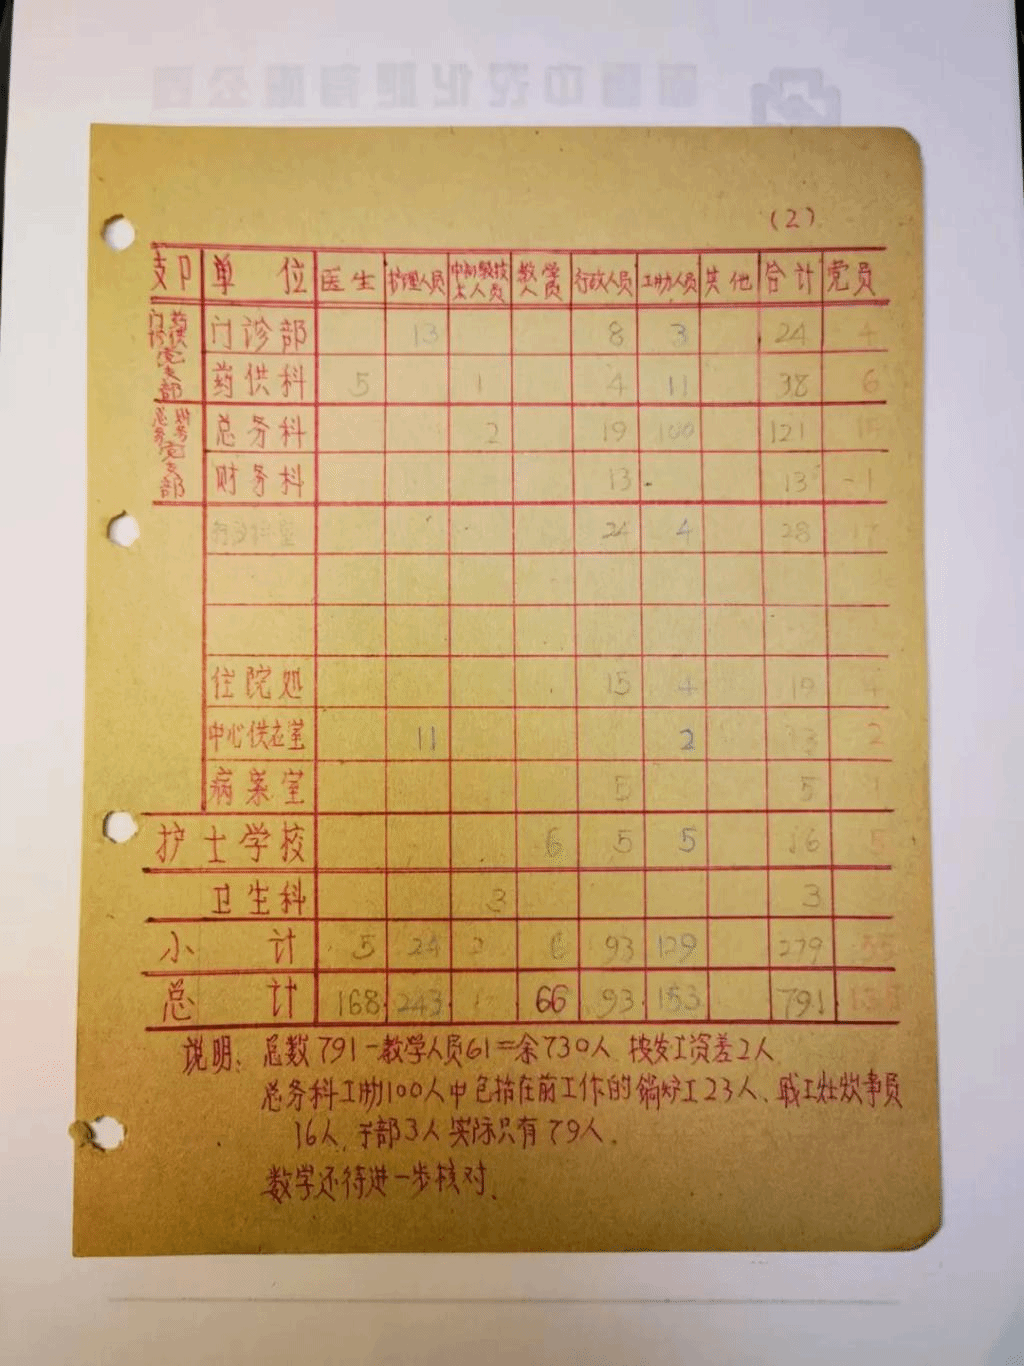 （2）
支部 单位 医生 护理人员 中初级技术人员 教学人员 行政人员 工勤人员 其他 合计 党员
门诊药供党支部 门诊部 13 8 3 24 4
药供科 5 1 4 11 38 6
总务财务党支部 总务科 2 19 100 121
财务科 13 13 1
24 4 28 17
住院处 15 4 19 4
中心供应室 11 2 13 2
病案室 5 5 1
护士学校 6 5 5 16 5
卫生科 3 3
小计 5 24 6 93 129 279 35
总计 168 243 66 93 153 791
说明：总数791－教学人员61＝余730人，按发工资差2人
总务科工勤100人中包括在前工作的锅炉工23人、职工灶炊事员
16人，干部3人实际只有79人．
数字还待进一步核对．